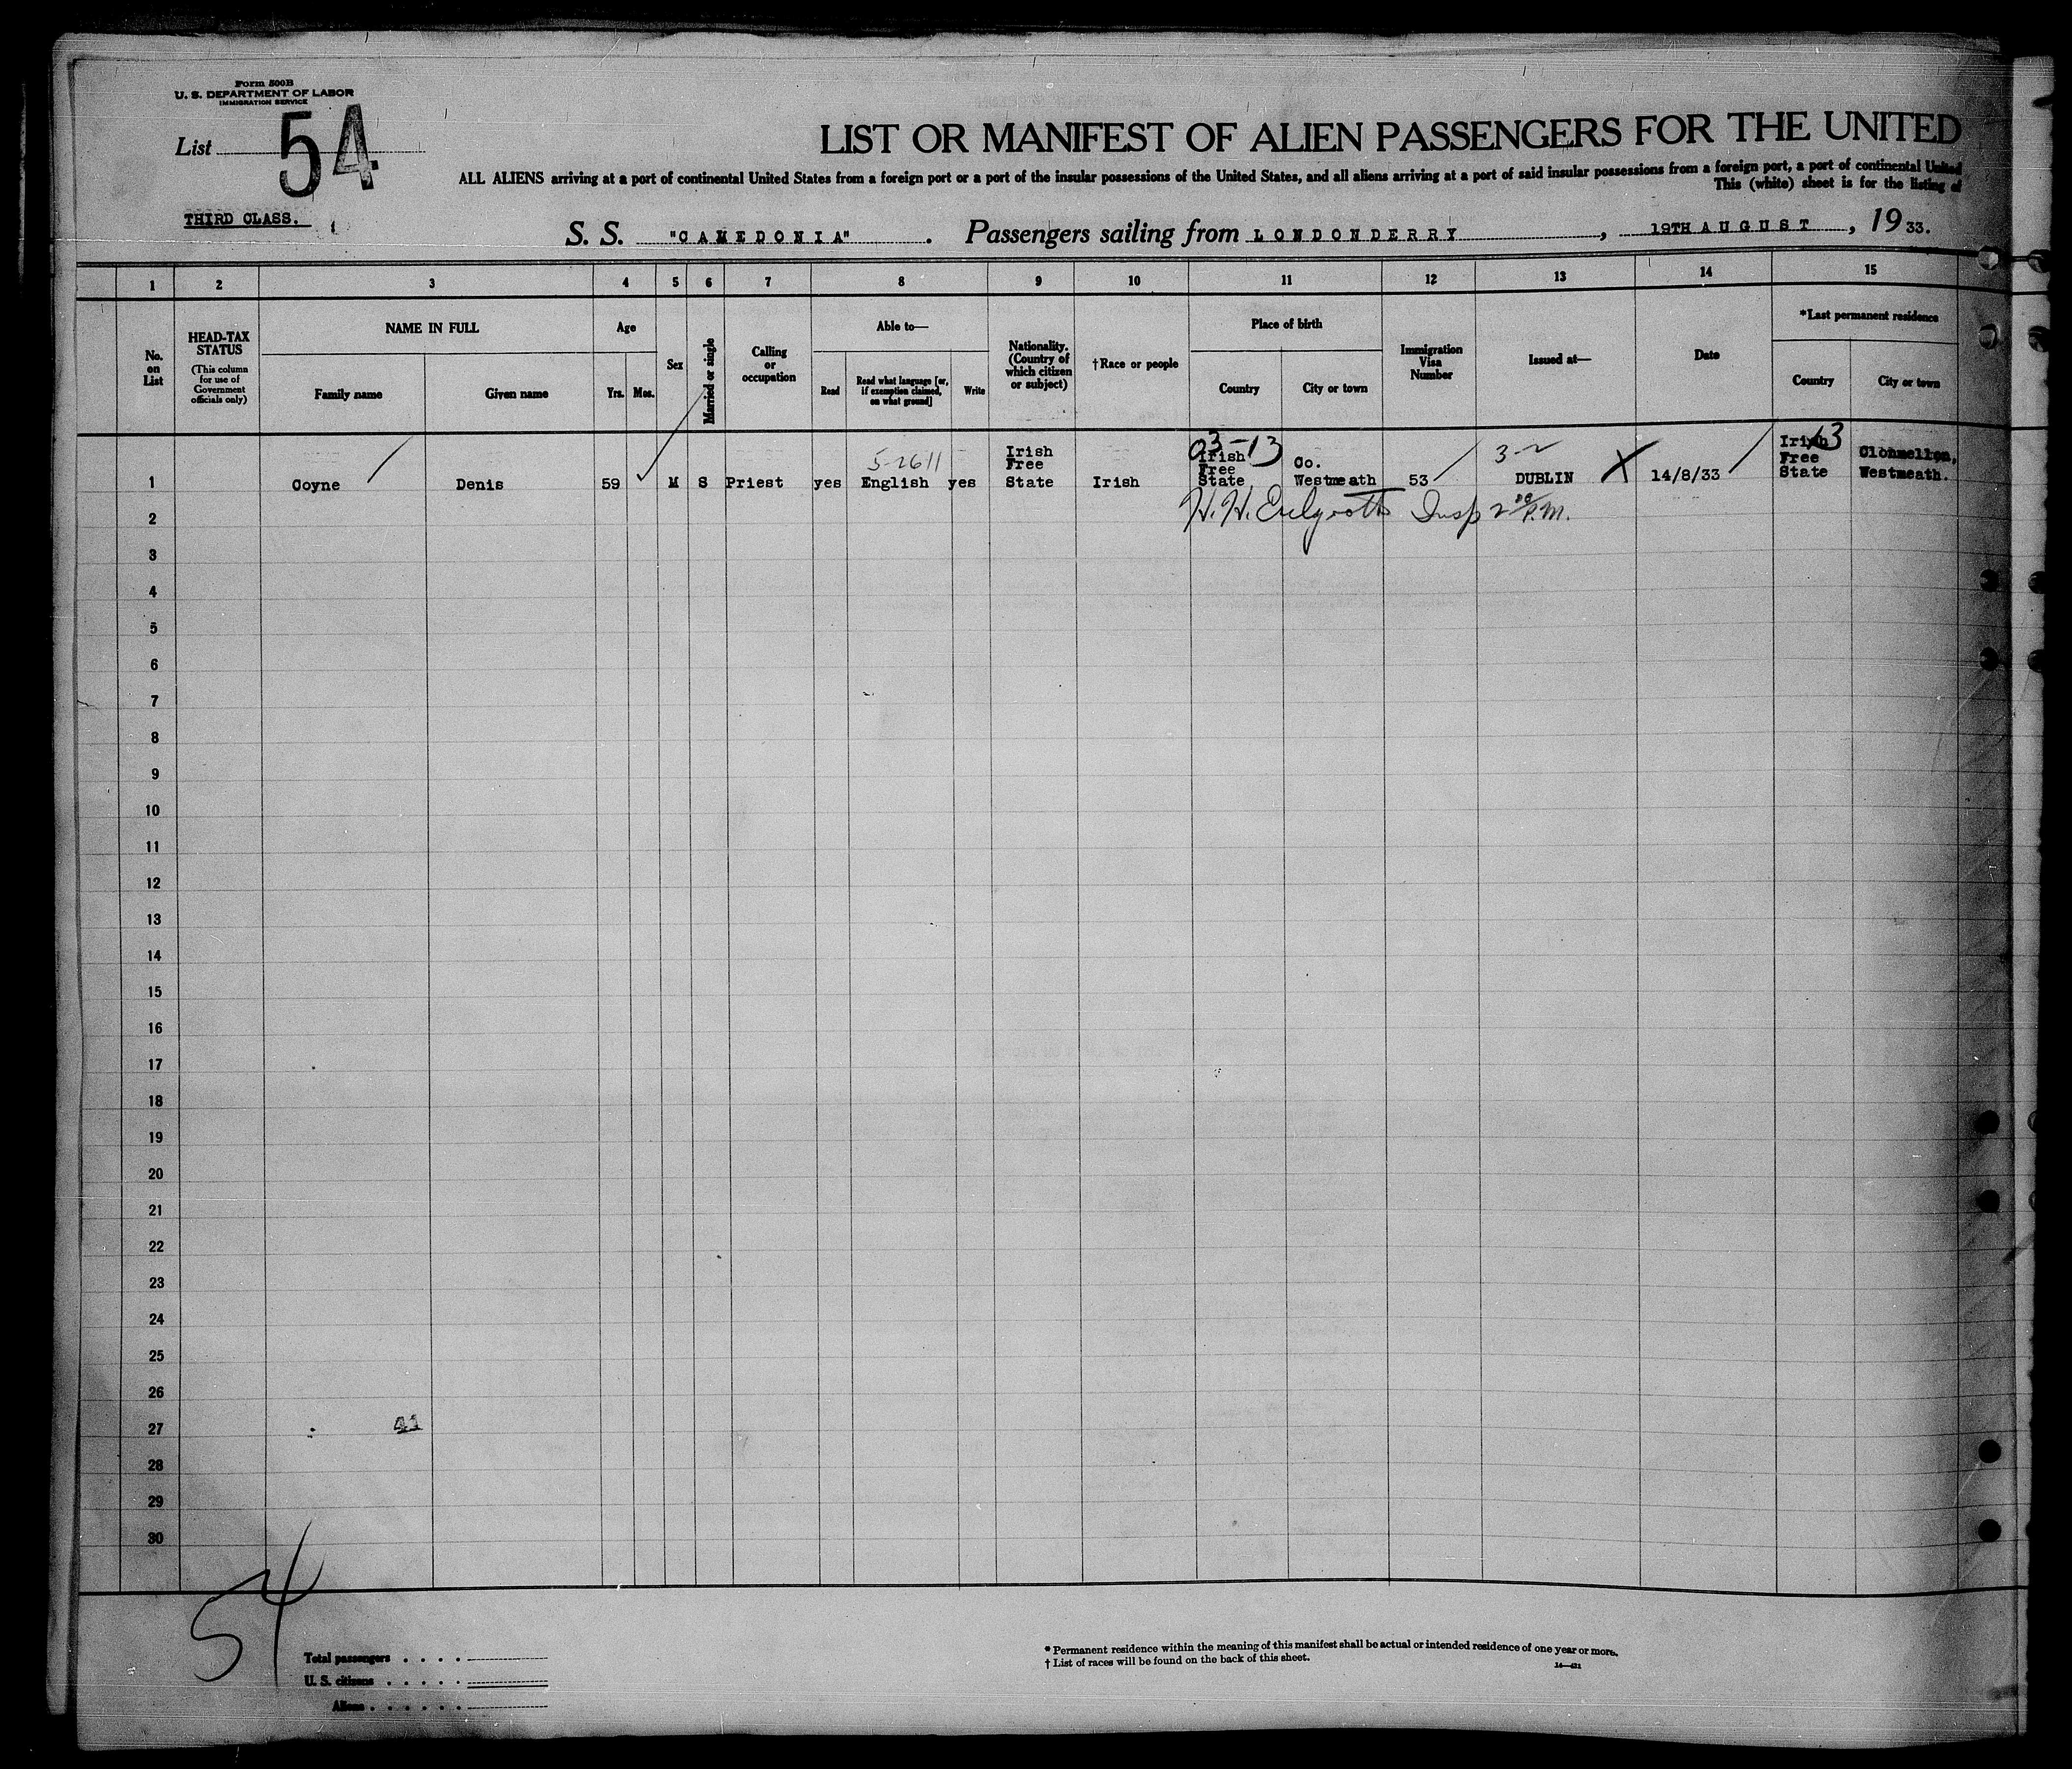 Form 500B
U. S. DEPARTMENT OF LABOR
IMMIGRATION SERVICE
List 54
LIST OR MANIFEST OF ALIEN PASSENGERS FOR THE UNITED
ALL ALIENS arriving at a port of continental United States from a foreign port or a port of the insular possessions of the United States, and all aliens arriving at a port of said insular possessions from a foreign port, a port of continental United
This (white) sheet is for the listing of
THIRD CLASS.
S. S. "CAMEDONIA". Passengers sailing from LONDONDERRY, 19TH AUGUST, 1933.
1 2 3 4 5 6 7 8 9 10 11 12 13 14 15
No. on List
HEAD-TAX STATUS (This column for use of Government officials only)
NAME IN FULL
Family name
Given name
Age
Yrs.
Mos.
Sex
Married or single
Calling or occupation
Able to—
Read
Read what language [or, if exemption claimed, on what ground]
Write
Nationality. (Country of which citizen or subject)
†Race or people
Place of birth
Country
City or town
Immigration Visa Number
Issued at—
Date
*Last permanent residence
Country
City or town
03-13
13
5-2611
3-2
1 Coyne Denis 59 M S Priest yes English yes Irish Free State Irish Irish Free State Co. Westmeath 53 DUBLIN X 14/8/33 Irish Free State Clonmellon, Westmeath.
2 H. H. Insp 2 P.M.
3
4
5
6
7
8
9
10
11
12
13
14
15
16
17
18
19
20
21
22
23
24
25
26
27 41
28
29
30
54
Total passengers
U. S. citizens
Aliens
* Permanent residence within the meaning of this manifest shall be actual or intended residence of one year or more.
† List of races will be found on the back of this sheet.